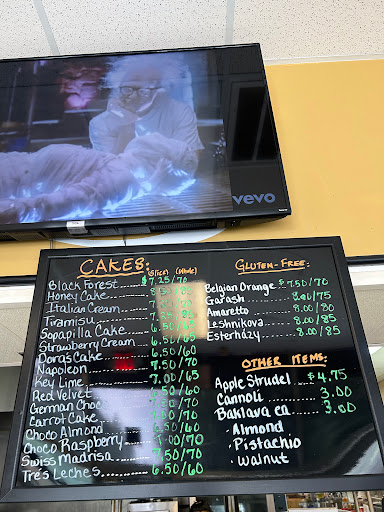 vevo
CAKES: (Slice) (Whole)
Black Forest $7.25/70
Honey Cake
Italian Cream
Tiramisu
Sopapilla Cake 6.50/65
Strawberry Cream 6.50/65
Doras Cake 6.50/60
Napoleon 7.50/70
Key Lime 7.00/65
Red Velvet 6.50/60
German Choc
Carrot Cake
Choco Almond 6.50/60
Choco Raspberry 7.00/70
Swiss Madrisa 7.50/70
Tres Leches 6.50/60
GLUTEN-FREE:
Belgian Orange $7.50/70
Garash 8.00/75
Amaretto 8.00/80
Leshnikova 8.00/85
Esterházy 8.00/85
OTHER ITEMS:
Apple Strudel $4.75
Cannoli 3.00
Baklava ea 3.00
· Almond
· Pistachio
· Walnut